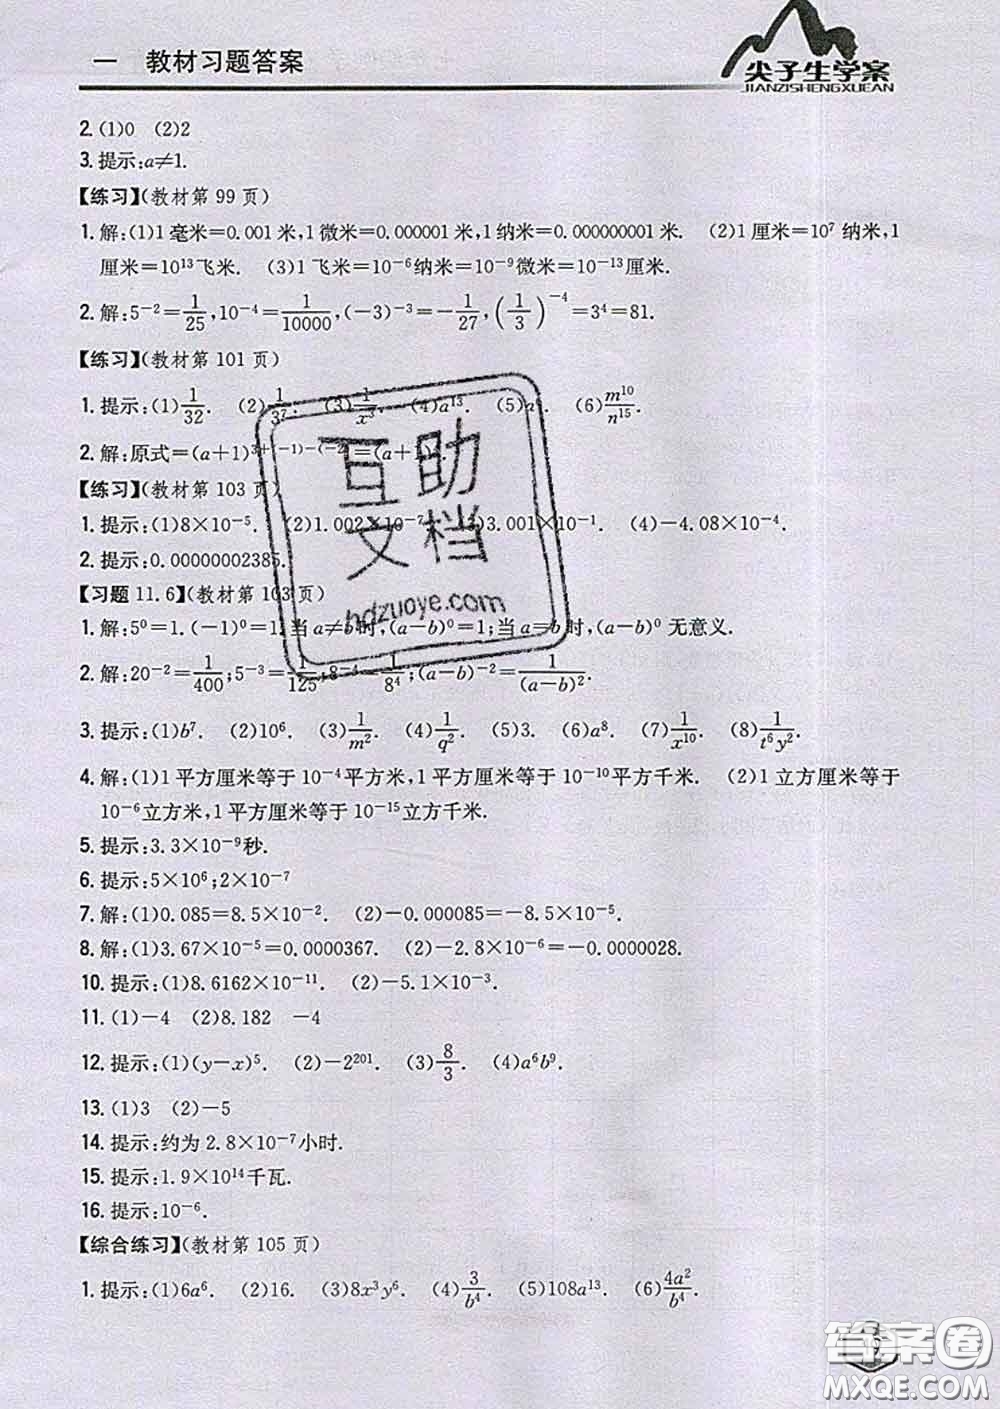 一 教材习题答案
尖子生学案
JIANZISHENGXUEAN
2. (1)0 (2)2
3. 提示:a≠1.
【练习】(教材第 99 页)
1. 解:(1)1毫米=0.001米,1微米=0.000001米,1纳米=0.000000001米. (2)1厘米=10⁷纳米,1
厘米=10¹³飞米. (3)1飞米=10⁻⁶纳米=10⁻⁹微米=10⁻¹³厘米.
2. 解:5⁻²=1/25,10⁻⁴=1/10000,(-3)⁻³=-1/27,(1/3)⁻⁴=3⁴=81.
【练习】(教材第 101 页)
1. 提示:(1)1/32. (2)1/3⁷. (3)1/x³. (4)a¹³. (5) (6)m¹⁰/n¹⁵.
2. 解:原式=(a+1)³⁺⁽⁻¹⁾⁻⁽⁻²⁾=(a+1)
【练习】(教材第 103 页)
1. 提示:(1)8×10⁻⁵. (2)1.002×10⁻⁷. (3)3.001×10⁻¹. (4)-4.08×10⁻⁴.
2. 提示:0.00000002385.
【习题 11.6】(教材第 103 页)
1. 解:5⁰=1.(-1)⁰=1.当 a≠b 时,(a-b)⁰=1;当 a=b 时,(a-b)⁰ 无意义.
2. 解:20⁻²=1/400;5⁻³=1/125;8⁻⁴=1/8⁴;(a-b)⁻²=1/(a-b)².
3. 提示:(1)b⁷. (2)10⁶. (3)1/m². (4)1/q². (5)3. (6)a⁸. (7)1/x¹⁰. (8)1/t⁶y².
4. 解:(1)1平方厘米等于10⁻⁴平方米,1平方厘米等于10⁻¹⁰平方千米. (2)1立方厘米等于
10⁻⁶立方米,1平方厘米等于10⁻¹⁵立方千米.
5. 提示:3.3×10⁻⁹秒.
6. 提示:5×10⁶;2×10⁻⁷
7. 解:(1)0.085=8.5×10⁻². (2)-0.000085=-8.5×10⁻⁵.
8. 解:(1)3.67×10⁻⁵=0.0000367. (2)-2.8×10⁻⁶=-0.0000028.
10. 提示:(1)8.6162×10⁻¹¹. (2)-5.1×10⁻³.
11. (1)-4 (2)8.182 -4
12. 提示:(1)(y-x)⁵. (2)-2²⁰¹. (3)8/3. (4)a⁶b⁹.
13. (1)3 (2)-5
14. 提示:约为2.8×10⁻⁷小时.
15. 提示:1.9×10¹⁴千瓦.
16. 提示:10⁻⁶.
【综合练习】(教材第 105 页)
1. 提示:(1)6a⁶. (2)16. (3)8x³y⁶. (4)3/b⁴. (5)108a¹³. (6)4a²/b⁴.
互助
文档
hdzuoye.com
答案卷
MXQE.COM